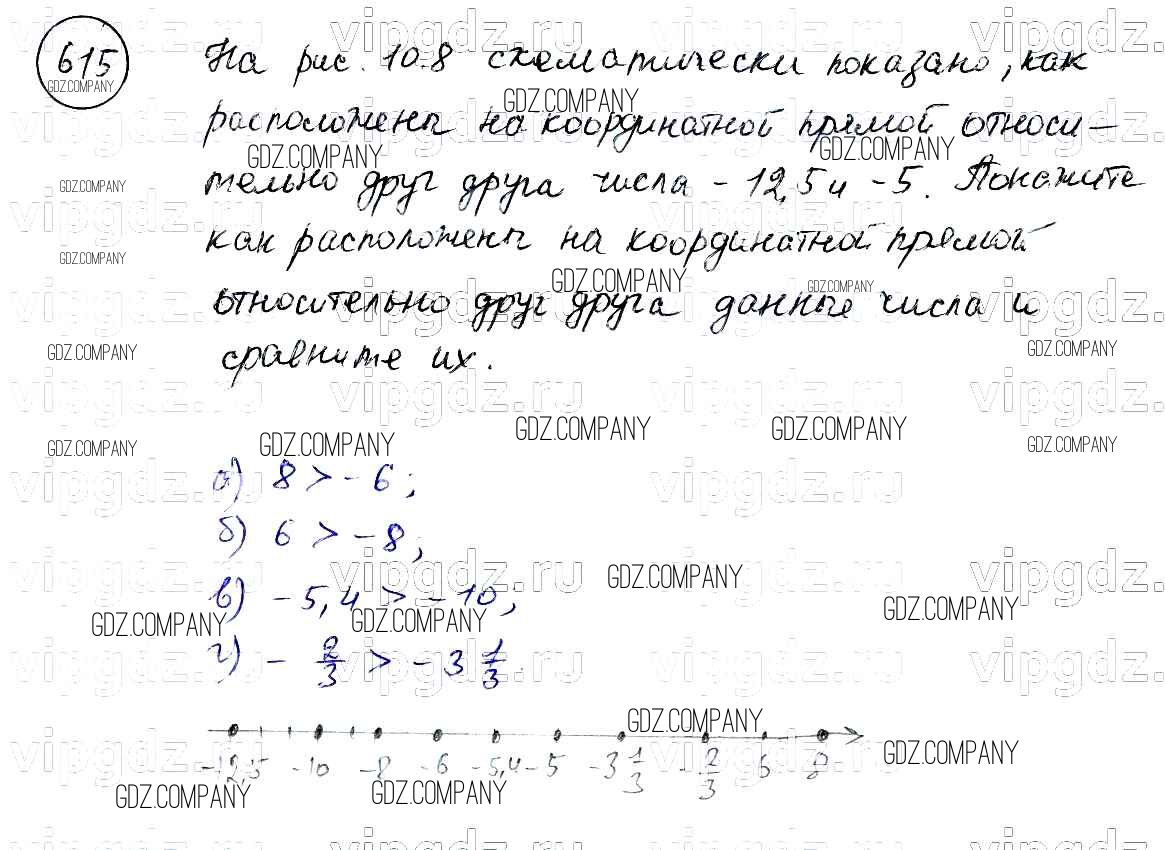 615
На рис. 10.8 схематически показано, как
расположены на координатной прямой относи-
тельно друг друга числа -12,5 и -5. Покажите
как расположены на координатной прямой
относительно друг друга данные числа и
сравните их.
а) 8 > -6;
б) 6 > -8;
в) -5,4 > -10,
г) - 2/3 > -3 1/3.
-12,5 -10 -8 -6 -5,4 -5 -3 1/3 - 2/3 6 8
GDZ.COMPANY
vipgdz.ru